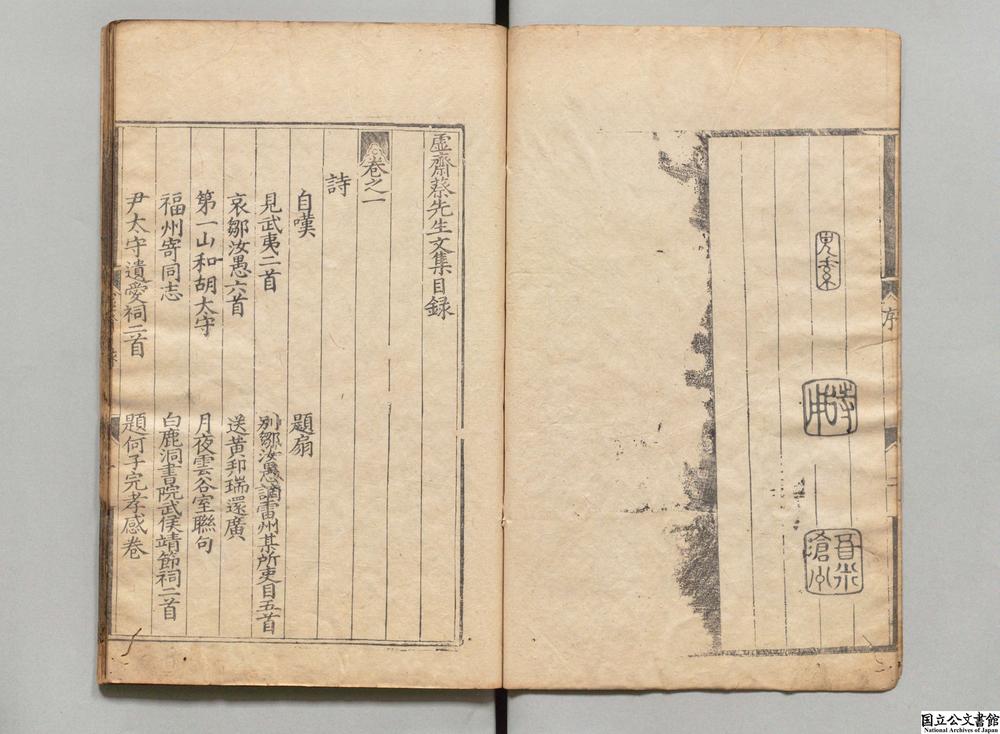 序
虛齋蔡先生文集目錄
卷之一
詩
自嘆 題扇
見武夷二首 別鄒汝愚謫雷州某所吏目五首
哀鄒汝愚六首 送黃邦瑞還廣
第一山和胡太守 月夜雲谷室聯句
福州寄同志 白鹿洞書院武侯靖節祠二首
尹太守遺愛祠二首 題何子完孝感卷
国立公文書館
National Archives of Japan